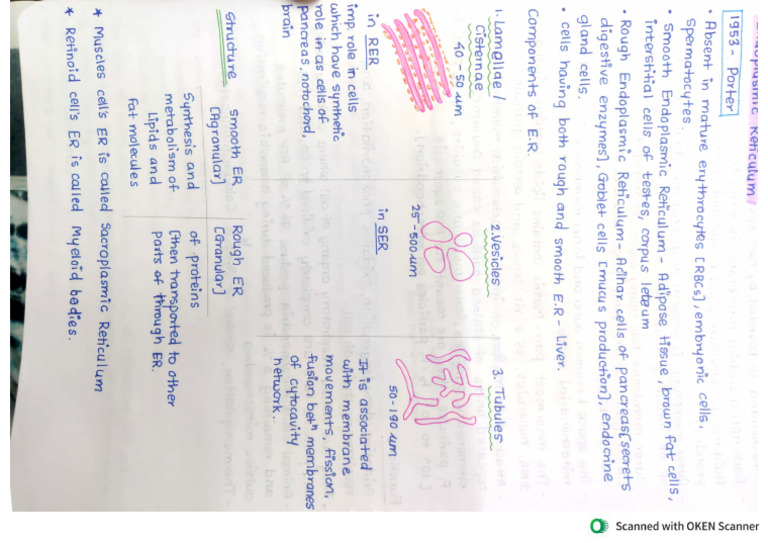 Endoplasmic Reticulum
1953- Porter
• Absent in mature erythrocytes [RBCs], embryonic cells,
spermatocytes.
• Smooth Endoplasmic Reticulum - Adipose tissue, brown fat cells,
interstitial cells of testes, corpus leteum
• Rough Endoplasmic Reticulum- Acinar cells of pancreas[secrets
digestive enzymes], Goblet cells [mucus production], endocrine
gland cells.
• cells having both rough and smooth E.R - Liver.
Components of E.R.
1. Lamallae /
Cisternae
40 - 50 um
in RER
imp role in cells
which have synthetic
role in as cells of
pancreas, notochord,
brain
2.Vesicles
25 - 500 um
in SER
3. Tubules
50-190 um
It is associated
with membrane
movements, fission,
fusion betn membranes
of cytocavity
network.
Structure
Smooth ER
[Agranular]
Rough ER
[Granular]
Synthesis and
metabolism of
Lipids and
Fat molecules
of proteins
[then transported to other
parts of through ER.
* Muscles cell's ER is called Sacroplasmic Reticulum
* Retinoid cell's ER is called Myeloid bodies.
Scanned with OKEN Scanner